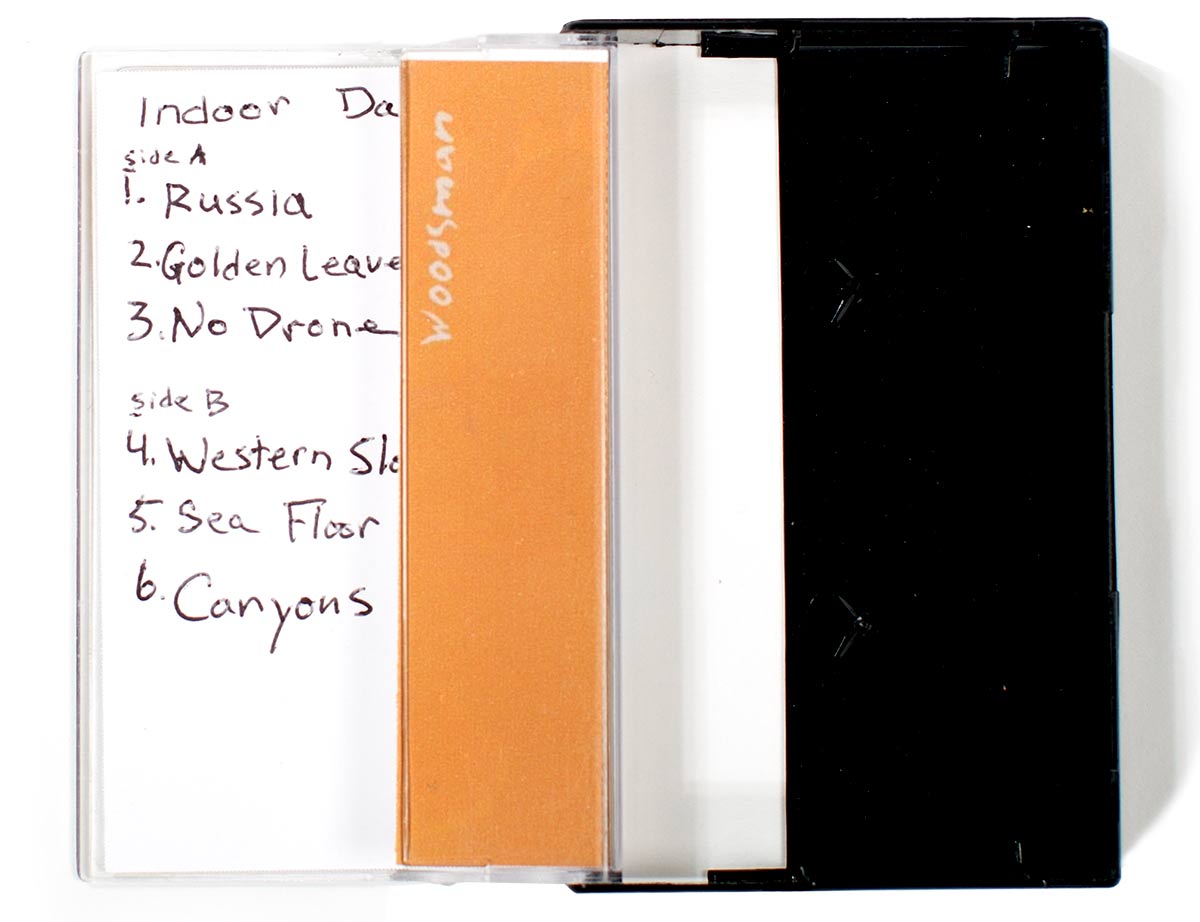 Indoor Da
side A
1. Russia
2. Golden Leave
3. No Drone
side B
4. Western Slo
5. Sea Floor
6. Canyons
Woodsman